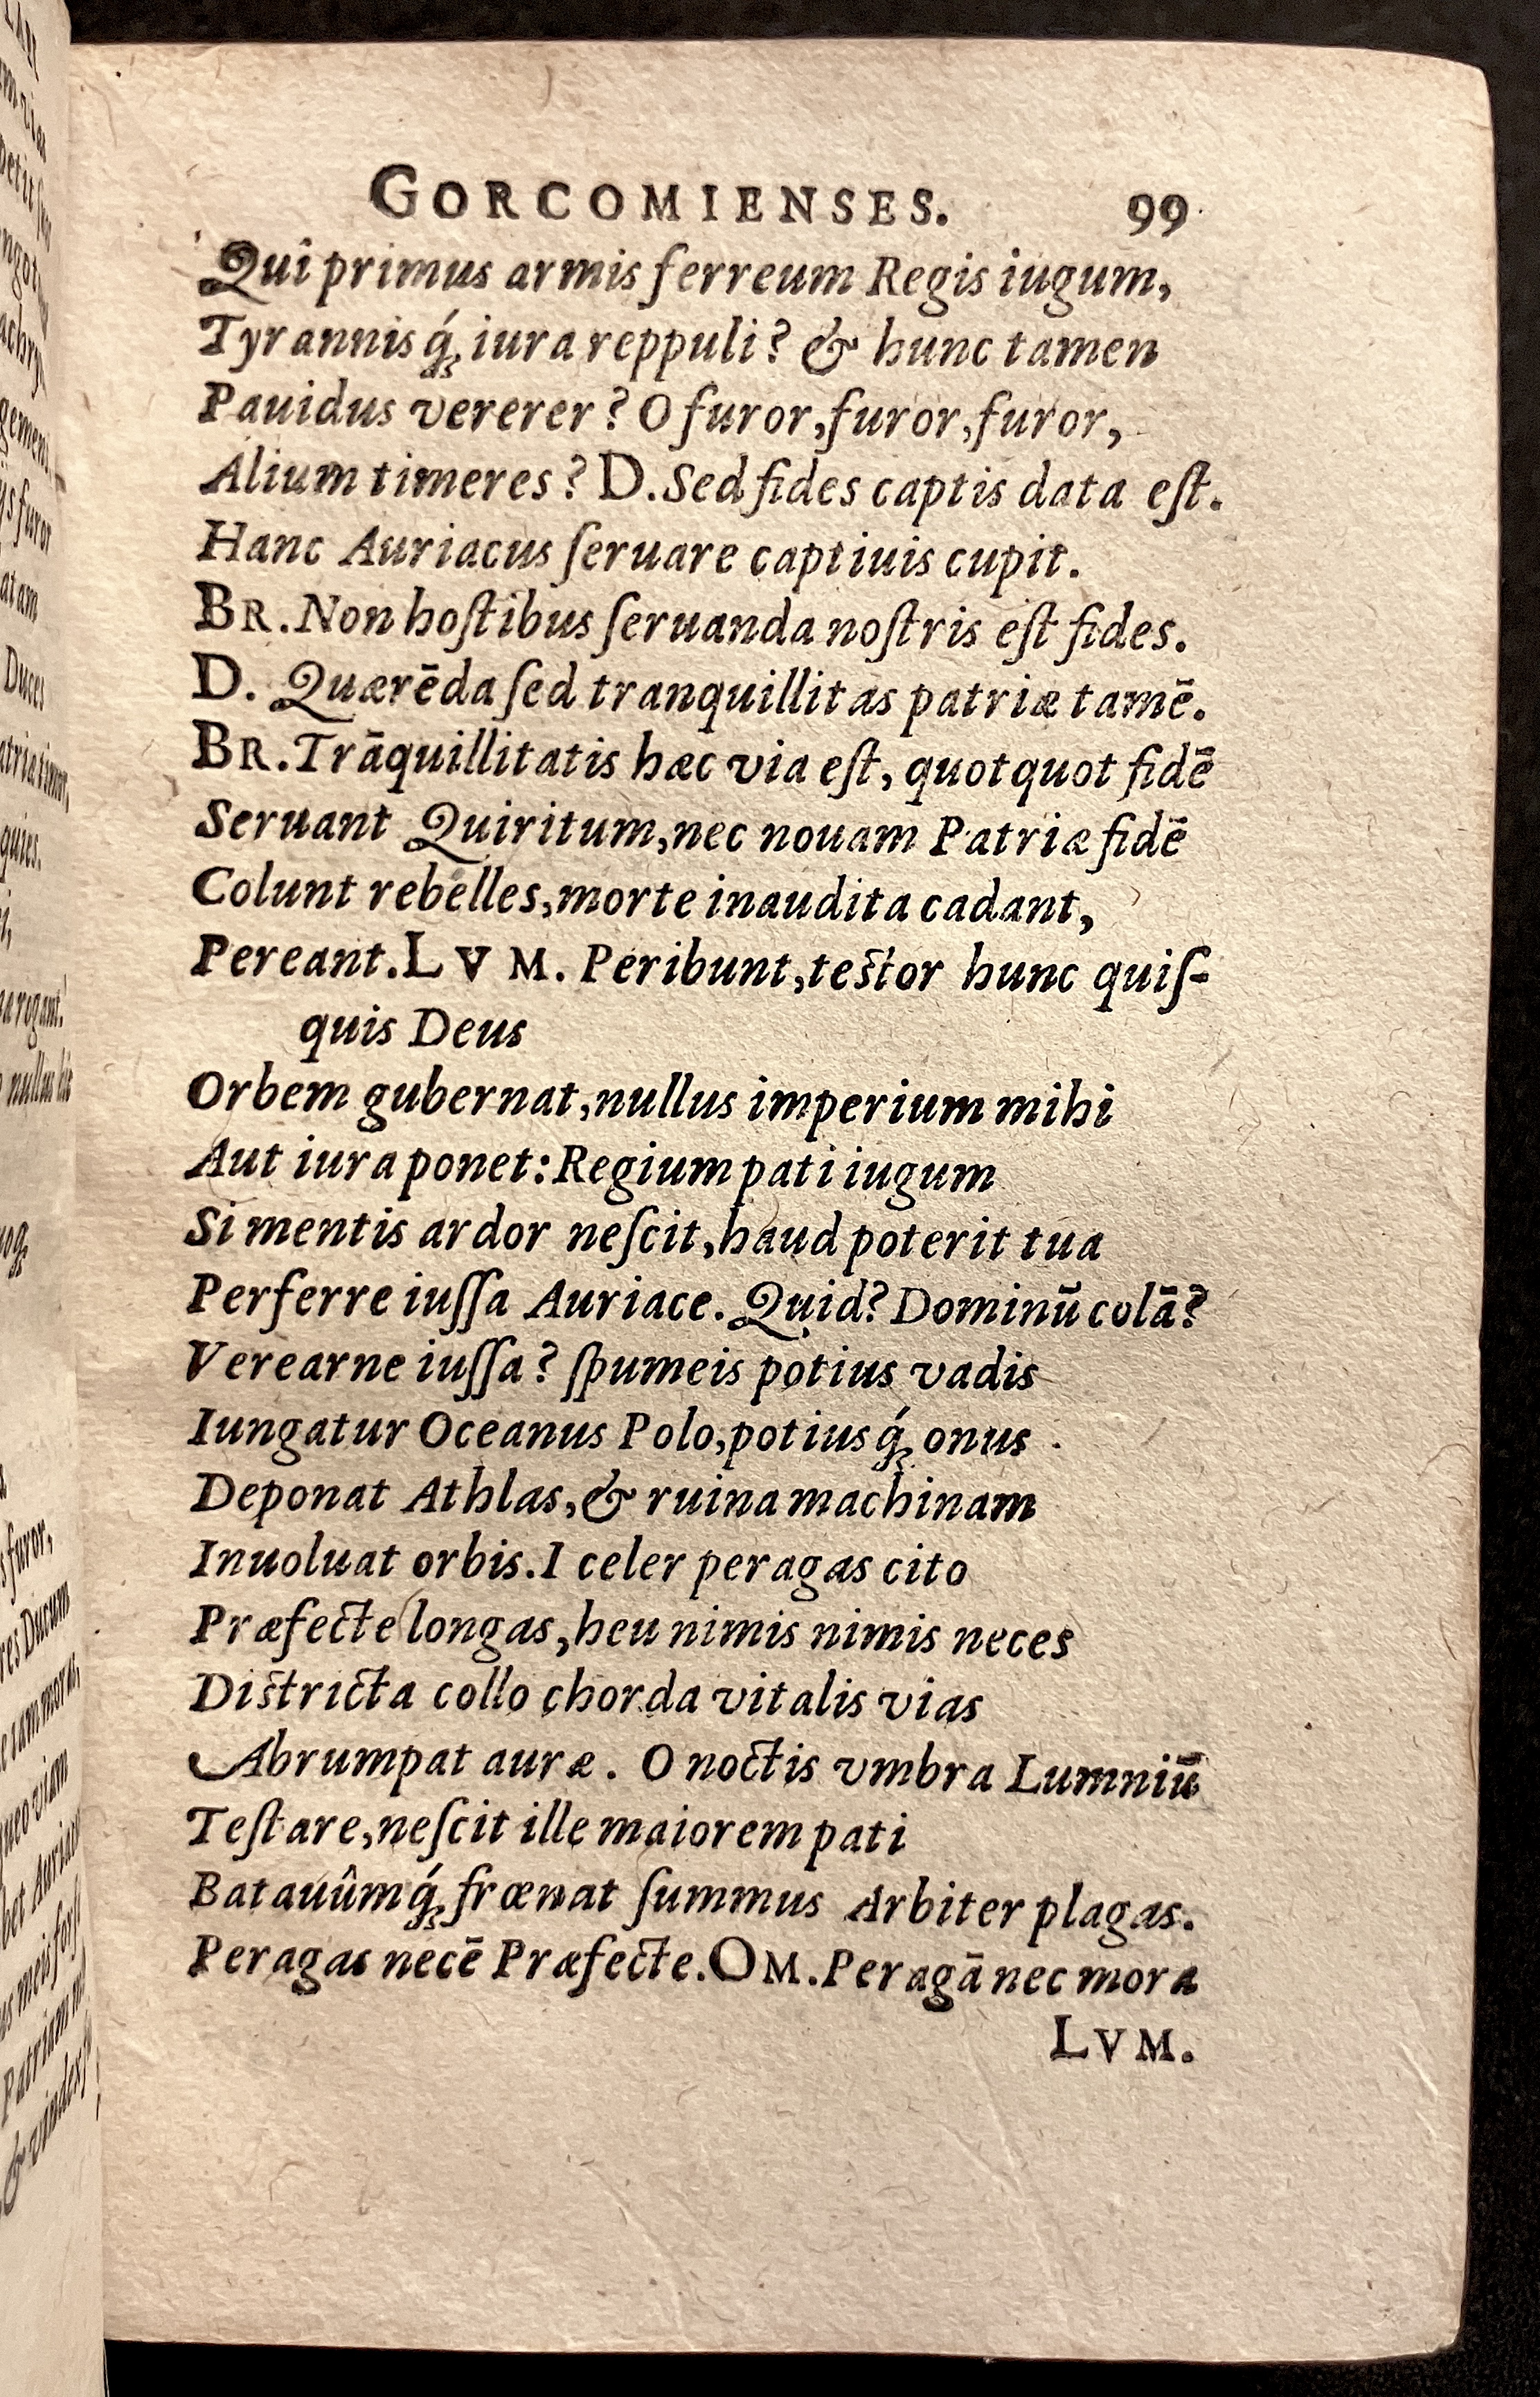 GORCOMIENSES. 99
Qui primus armis ferreum Regis iugum,
Tyrannisq́; iura reppuli? & hunc tamen
Pauidus vererer? O furor, furor, furor,
Alium timeres? D. Sed fides captis data eſt.
Hanc Auriacus ſeruare captiuis cupit.
BR. Non hoſtibus ſeruanda noſtris eſt fides.
D. Quærēda ſed tranquillitas patriæ tamē.
BR. Trāquillitatis hæc via eſt, quotquot fidē
Seruant Quiritum, nec nouam Patriæ fidē
Colunt rebelles, morte inaudita cadant,
Pereant. LVM. Peribunt, teſtor hunc quiſ-
quis Deus
Orbem gubernat, nullus imperium mihi
Aut iura ponet: Regium pati iugum
Si mentis ardor neſcit, haud poterit tua
Perferre iuſſa Auriace. Quid? Dominū colā?
Verearne iuſſa? ſpumeis potius vadis
Iungatur Oceanus Polo, potiusq́; onus
Deponat Athlas, & ruina machinam
Inuoluat orbis. I celer peragas cito
Præfecte longas, heu nimis nimis neces
Diſtricta collo chorda vitalis vias
Abrumpat auræ. O noctis vmbra Lumniū
Teſtare, neſcit ille maiorem pati
Batauûmq́; frœnat ſummus Arbiter plagas.
Peragas necē Præfecte. OM. Peragā nec mora
LVM.